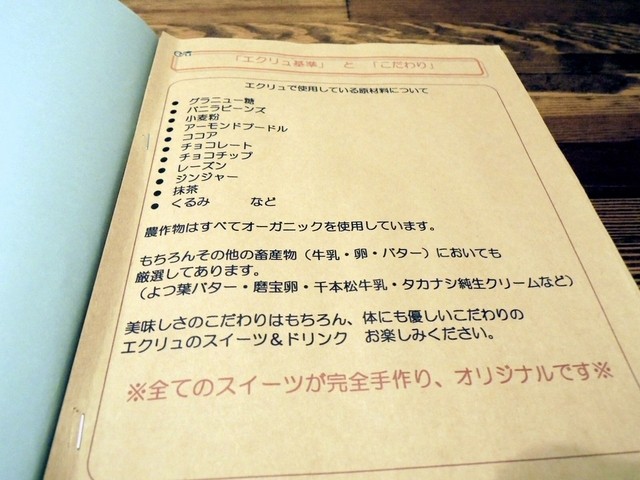 「エクリュ基準」 と 「こだわり」
エクリュで使用している原材料について
● グラニュー糖
● バニラビーンズ
● 小麦粉
● アーモンドプードル
● ココア
● チョコレート
● チョコチップ
● レーズン
● ジンジャー
● 抹茶
● くるみ など
農作物はすべてオーガニックを使用しています。
もちろんその他の畜産物（牛乳・卵・バター）においても
厳選してあります。
（よつ葉バター・磨宝卵・千本松牛乳・タカナシ純生クリームなど）
美味しさのこだわりはもちろん、体にも優しいこだわりの
エクリュのスイーツ＆ドリンク お楽しみください。
※全てのスイーツが完全手作り、オリジナルです※